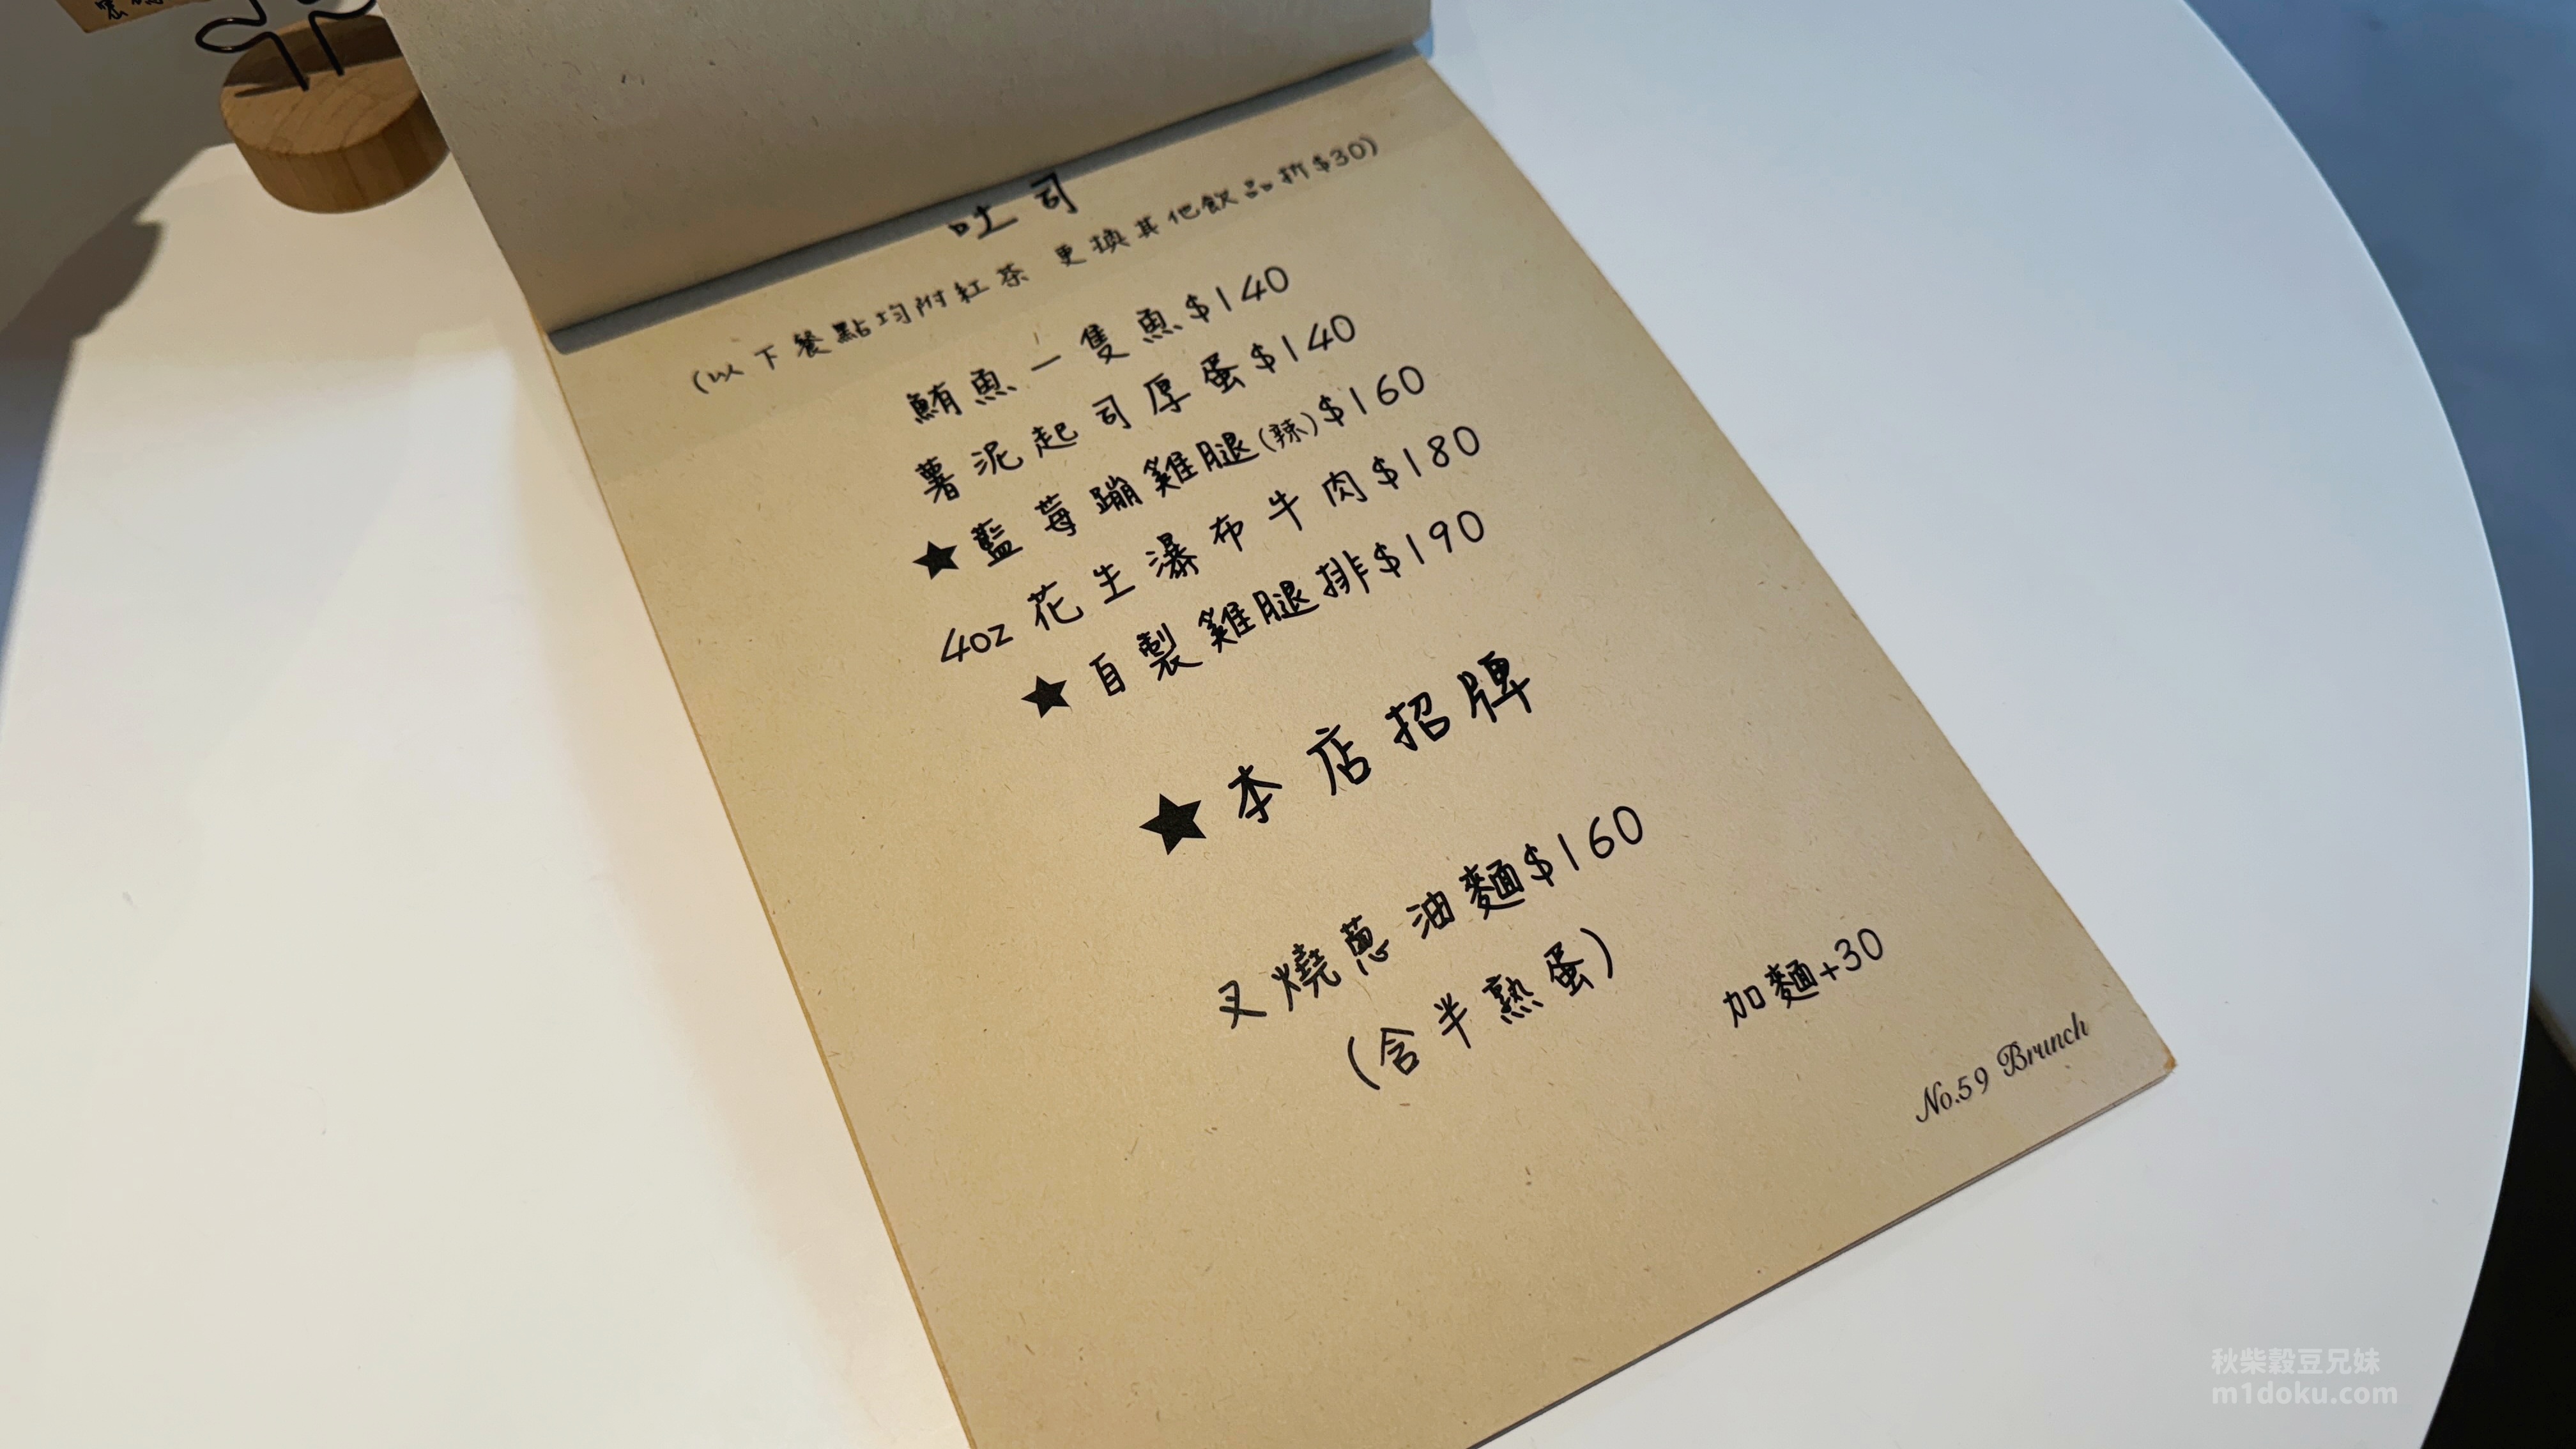 吐司
(以下餐點均附紅茶 更換其他飲品折$30)
鮪魚一隻魚$140
薯泥起司厚蛋$140
★藍莓蹦雞腿(辣)$160
4oz花生瀑布牛肉$180
★自製雞腿排$190
★本店招牌
叉燒蔥油麵$160
(含半熟蛋)
加麵+30
No.59 Brunch
秋柴穀豆兄妹
m1doku.com